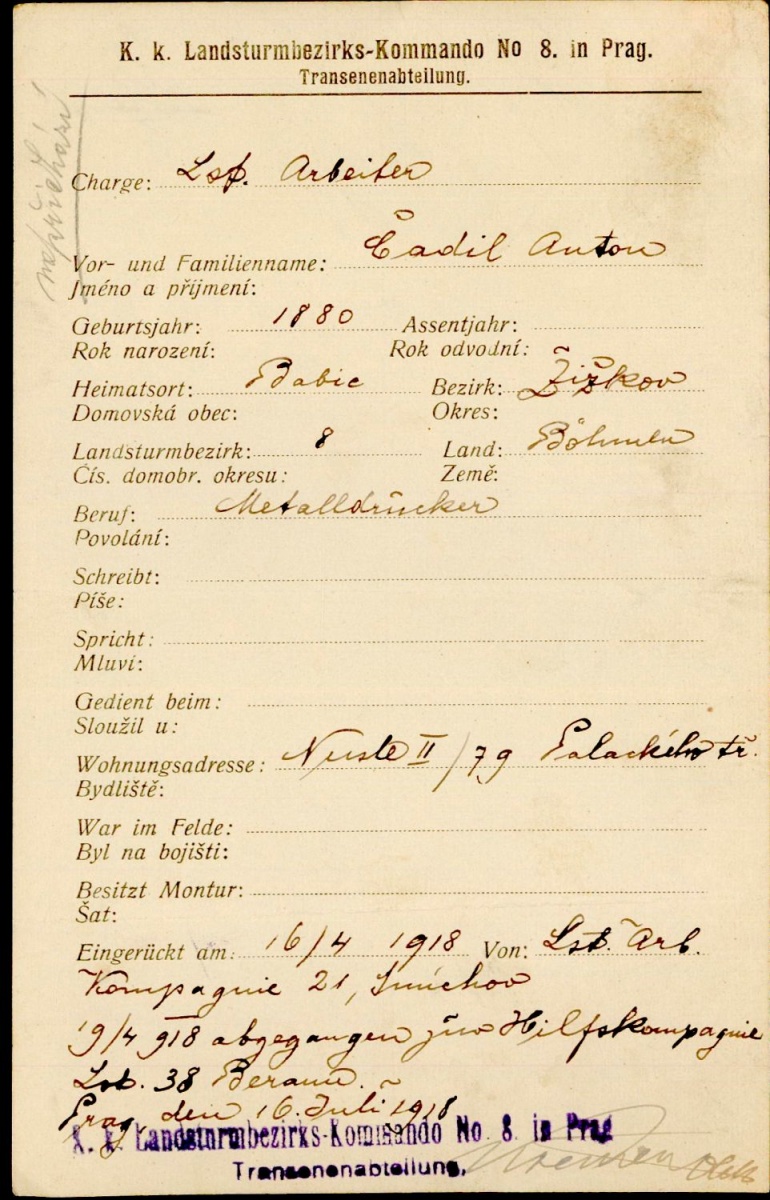 K. k. Landsturmbezirks-Kommando No 8. in Prag.
Transenenabteilung.
Charge: Lst. Arbeiter
Čadil Anton
Vor- und Familienname:
Jméno a přijmení:
Geburtsjahr: 1880 Assentjahr:
Rok narození: Rok odvodní:
Heimatsort: Babic Bezirk: Žižkov
Domovská obec: Okres:
Landsturmbezirk: 8 Land: Böhmen
Čís. domobr. okresu: Země:
Beruf: Metalldrücker
Povolání:
Schreibt:
Píše:
Spricht:
Mluví:
Gedient beim:
Sloužil u:
Wohnungsadresse: Nusle II/79 Palackého tř.
Bydliště:
War im Felde:
Byl na bojišti:
Besitzt Montur:
Šat:
Eingerückt am: 16/4 1918 Von: Lst. Arb.
Kompagnie 21,
19/4 918 abgegangen zur Hilfskompagnie
Lst. 38 Beraun.
Prag, den 16. Juli 1918
K. k. Landsturmbezirks-Kommando No. 8. in Prag
Transenenabteilung.